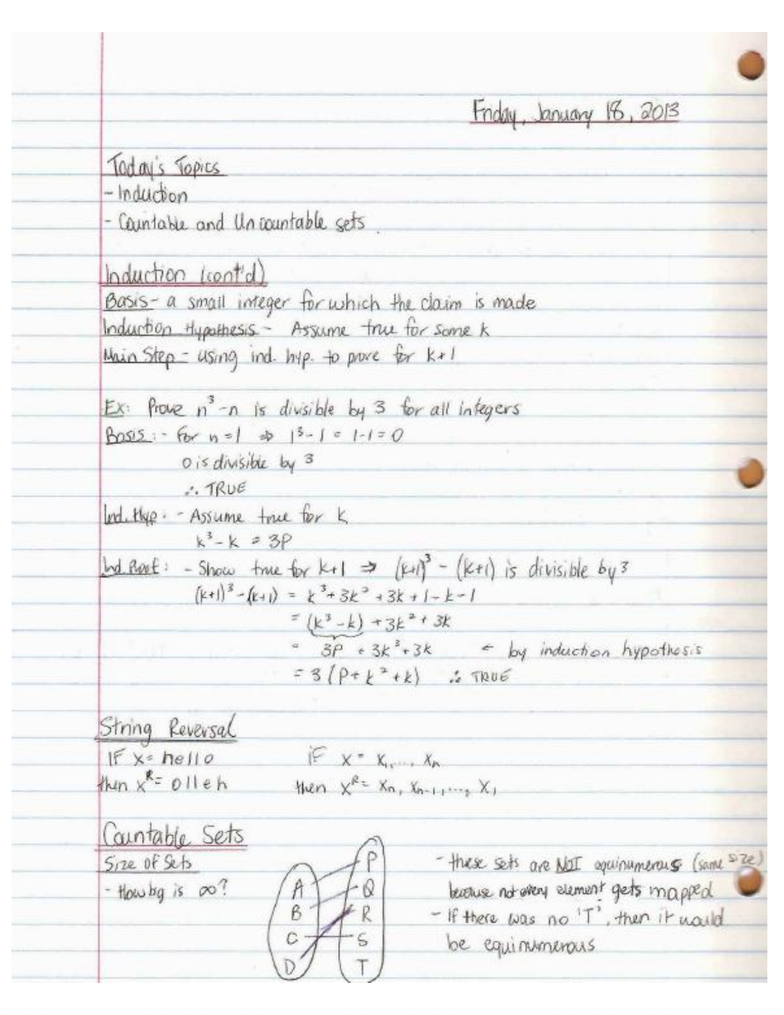 Friday, January 18, 2013
Today's Topics
- Induction
- Countable and Uncountable sets.
Induction (cont'd)
Basis - a small integer for which the claim is made
Induction Hypothesis - Assume true for some k
Main Step - using ind. hyp. to prove for k+1
Ex: Prove n³-n is divisible by 3 for all integers
Basis: - For n=1 ⇒ 1³-1 = 1-1=0
0 is divisible by 3
∴ TRUE
Ind. Hyp. - Assume true for k
k³-k = 3P
Ind. Proof: - Show true for k+1 ⇒ (k+1)³ - (k+1) is divisible by 3
(k+1)³-(k+1) = k³+3k²+3k+1-k-1
= (k³-k) + 3k² + 3k
= 3P + 3k³+3k ← by induction hypothesis
= 3(P+k²+k) ∴ TRUE
String Reversal
IF x= hello if x = x₁,..., xₙ
then xᴿ= olleh then xᴿ= xₙ, xₙ₋₁,..., x₁
Countable Sets
Size of Sets
- How big is ∞?
A B C D
P Q R S T
- these sets are NOT equinumerous (same size)
because not every element gets mapped
- If there was no 'T', then it would
be equinumerous